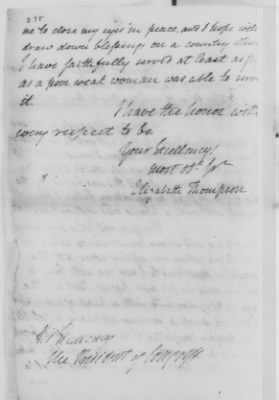 me to close my eyes in peace, and I hope will
draw down blessings on a country
I have faithfully served at least as
as a poor weak woman was able to
it
I have the honor with
every respect to be
Your Excellency
most Obt Sert
Elizabeth Thompson
His Excellency
The President of Congress